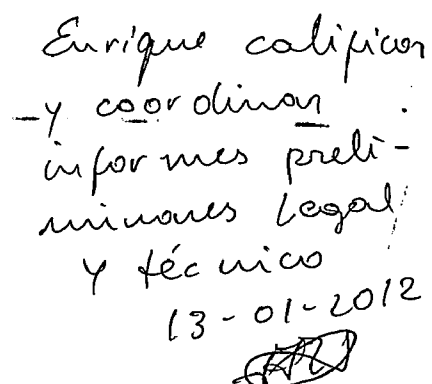 Enrique calificar
-y coordinar
informes preli-
minares legal
y técnico
13-01-2012